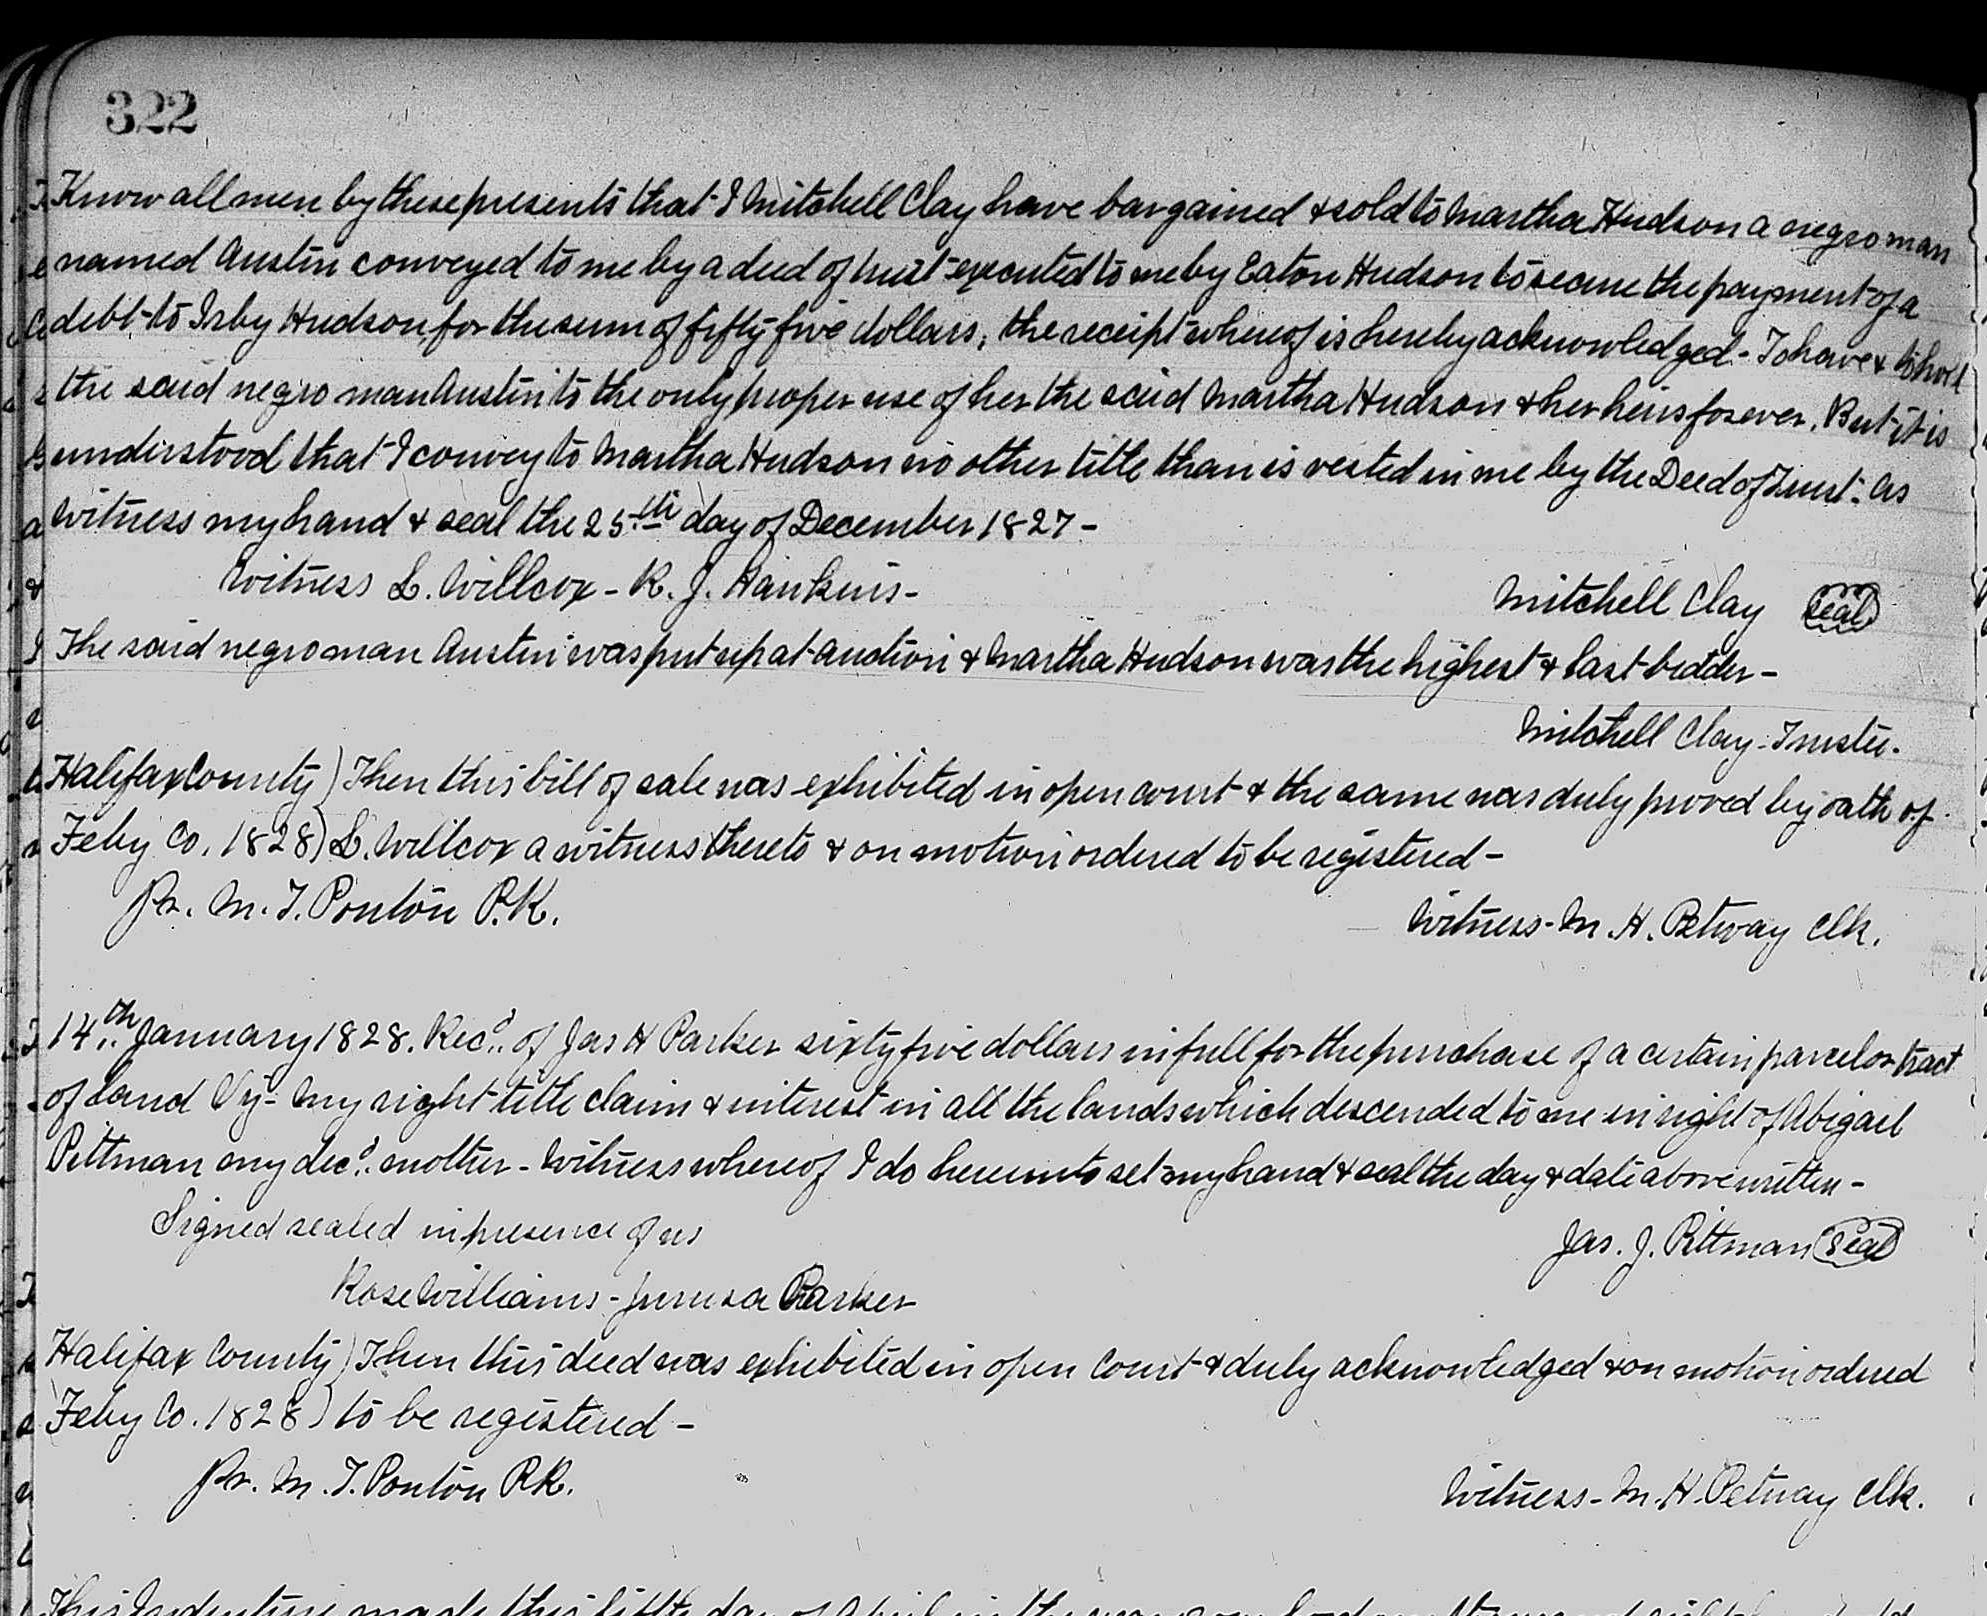 322
Know all men by these presents that I Mitchell Clay have bargained & sold to Martha Hudson a negro man
named Austin conveyed to me by a deed of trust executed to me by Eaton Hudson to secure the payment of a
debt to Irby Hudson, for the sum of fifty five dollars, the receipt whereof is hereby acknowledged - To have & to hold
the said negro man Austin to the only proper use of her the said Martha Hudson & her heirs forever. But it is
understood that I convey to Martha Hudson no other title than is vested in me by the Deed of Trust. As
witness my hand & seal the 25th day of December 1827 -
Witness L. Willcox - R. J. Hawkins - Mitchell Clay Seal
The said negro man Austin was put up at auction & Martha Hudson was the highest & last bidder -
Mitchell Clay - Trustee.
Halifax County ) Then this bill of sale was exhibited in open court & the same was duly proved by oath of
Feby Co. 1828 ) L. Willcox a witness thereto & on motion ordered to be registered -
Pr. M. T. Ponton P.R. Witness - M. H. Petway Clk.
14th January 1828. Recd. of Jas H Parker sixty five dollars in full for the purchase of a certain parcel or tract
of land Viz - My right title claim & interest in all the lands which descended to me in right of Abigail
Pittman my decd. mother - Witness whereof I do hereunto set my hand & seal the day & date above written -
Signed sealed in presence of us Jas. J. Pittman Seal
Rose Williams - Jerusa Parker
Halifax County ) Then this deed was exhibited in open Court & duly acknowledged & on motion ordered
Feby Co. 1828 ) to be registered -
Pr. M. T. Ponton P.R. Witness - M. H. Petway Clk.